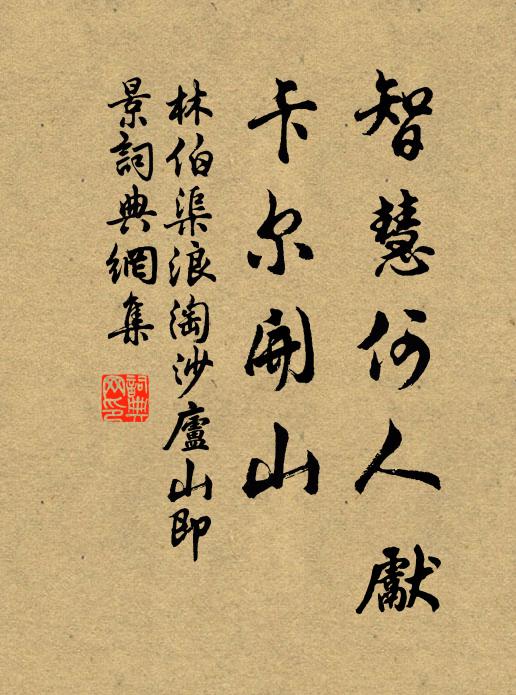 智慧何人獻
卡尔開山
林伯渠浪淘沙廬山即
景詞典網集
詞典
网印